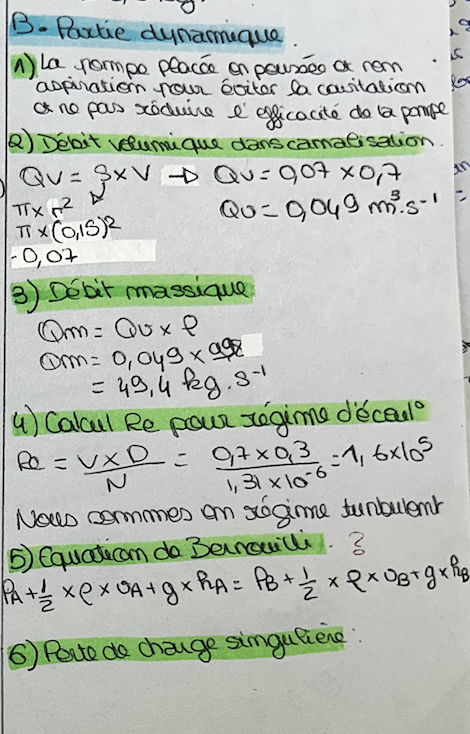 B. Partie dynamique
1) La pompe placée en poussée et non
aspiration pour éviter la cavitation
et ne pas réduire l'efficacité de la pompe
2) Débit volumique dans canalisation.
Qv = S x V → Qv = 0,07 x 0,7
π x r² Qv = 0,049 m³.s⁻¹
π x (0,15)²
= 0,07
3) Débit massique
Qm = Qv x ρ
Qm = 0,049 x 998
= 49,4 kg.s⁻¹
4) Calcul Re pour régime d'écoul°
Re = V x D / N = 0,7 x 0,3 / 1,31 x 10⁻⁶ = 1,6 x 10⁵
Nous sommes en régime turbulent
5) Equation de Bernouilli. ?
PA + 1/2 x ρ x vA + g x hA = PB + 1/2 x ρ x vB + g x hB
6) Perte de charge singulière :